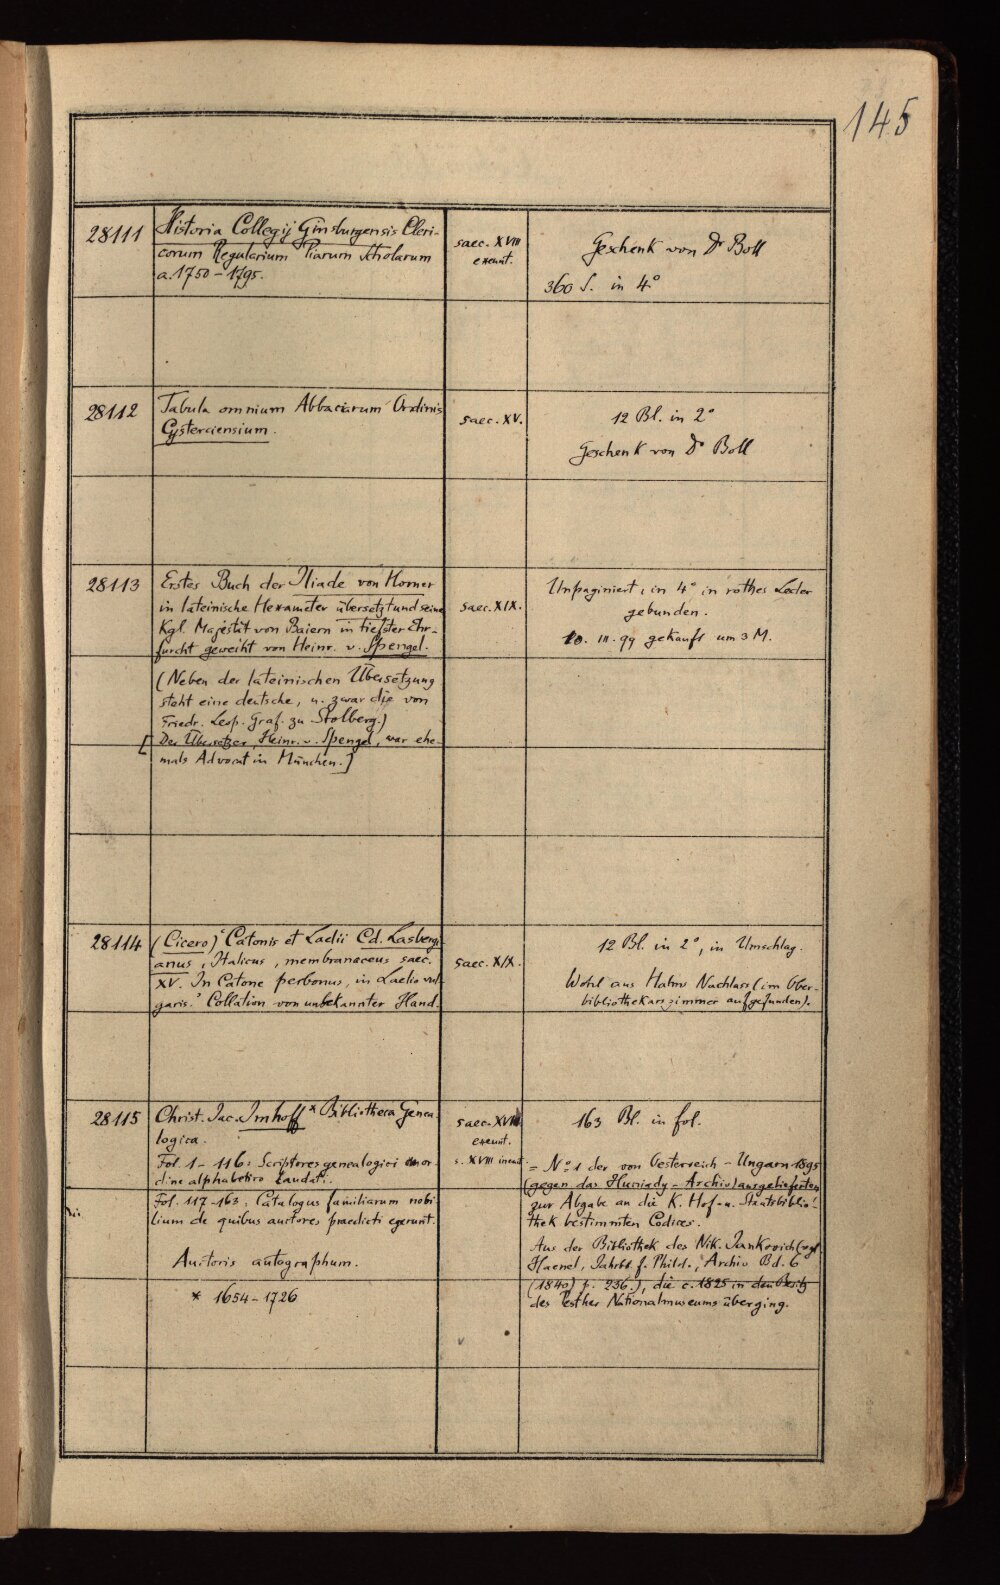 145
28111
Historia Collegij Ginsburgensis Cleri-
corum Regularium Piarum Scholarum
a. 1750 - 1795.
saec. XVIII
exeunt.
Geschenk von Dr Boll
360 S. in 4°
28112
Tabula omnium Abbaciarum Ordinis
Cysterciensium.
saec. XV.
12 Bl. in 2°
Geschenk von Dr Boll
28113
Erstes Buch der Iliade von Homer
in lateinische Hexameter übersetzt und seiner
Kgl. Majestät von Baiern in tiefster Ehr-
furcht geweiht von Heinr. v. Spengel.
(Neben der lateinischen Übersetzung
steht eine deutsche, u. zwar die von
Friedr. Leop. Graf. zu Stolberg.)
[Der Übersetzer, Heinr. v. Spengel, war ehe-
mals Advocat in München.]
saec. XIX.
Unpaginiert, in 4° in rothes Leder
gebunden.
20. III. 99 gekauft um 3 M.
28114
(Cicero) "Catonis et Laelii Cd. Lasbergi-
anus, Italicus, membranaceus saec.
XV. In Catone perbonus, in Laelio vul-
garis." Collation von unbekannter Hand.
saec. XIX.
12 Bl. in 2°, in Umschlag.
Wohl aus Halms Nachlass (im Ober-
bibliothekarszimmer aufgefunden).
28115
Christ. Jac. Imhoff * Bibliotheca Genea-
logica.
Fol. 1 - 116: Scriptores genealogici in or-
dine alphabetico laudati.
Fol. 117-163: Catalogus familiarum nobi-
lium de quibus auctores praedicti egerunt.
Auctoris autographum.
* 1654-1726
saec. XVII
exeunt.
s. XVIII ineunt.
163 Bl. in fol.
= N° 1 der von Oesterreich - Ungarn 1895
(gegen das Huniady - Archiv) ausgelieferten
zur Abgabe an die K. Hof- u. Staatsbiblio-
thek bestimmten Codices.
Aus der Bibliothek des Nik. Jankovich (vgl.
Haenel, Jahrbb. f. Philol., Archiv Bd. 6
(1840) p. 236.), die c. 1825 in den Besitz
des Pesther Nationalmuseums überging.